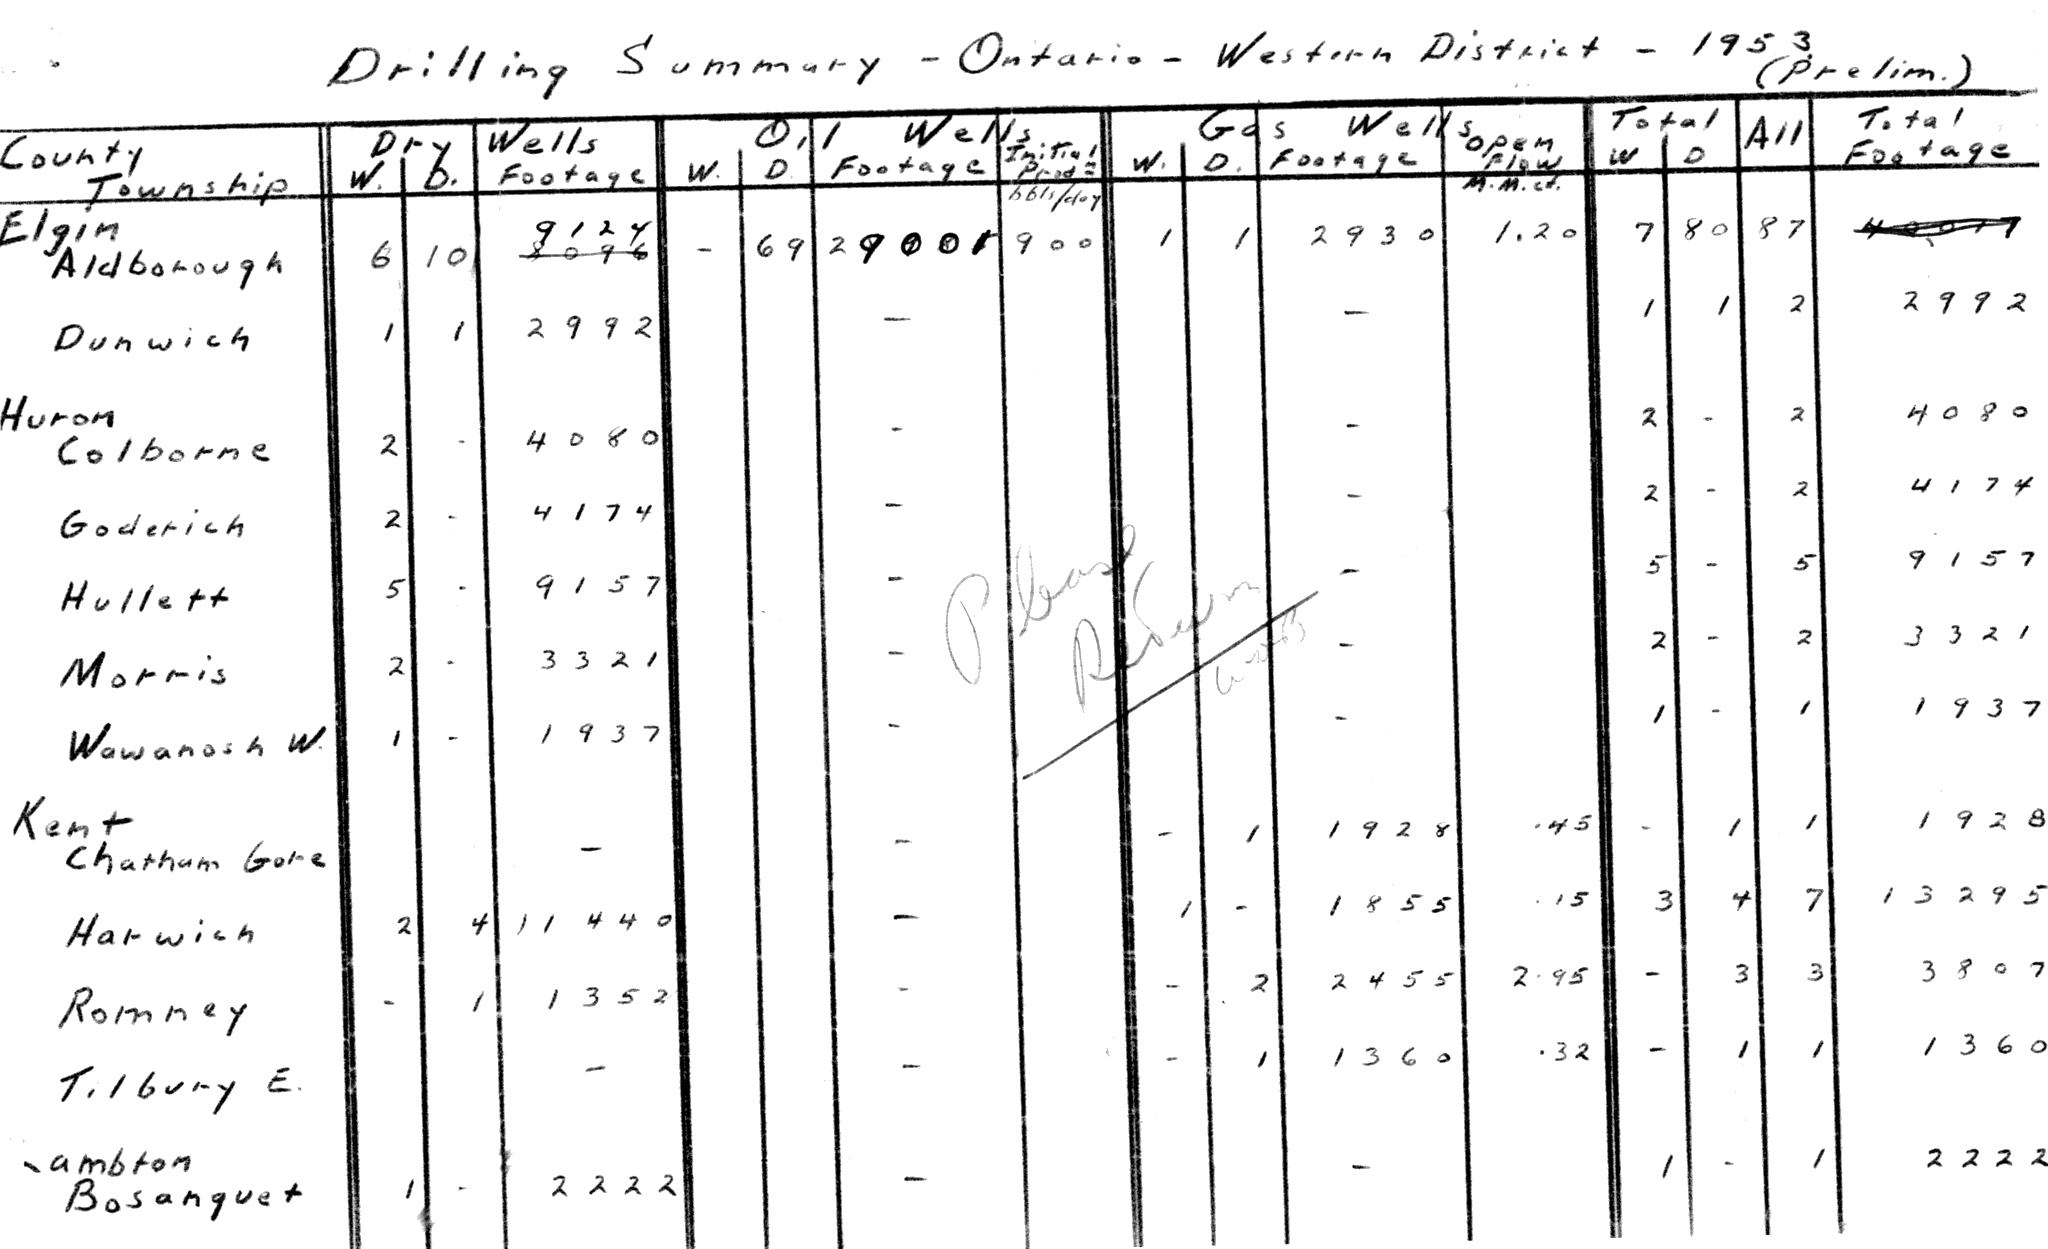 Drilling Summary - Ontario - Western District - 1953
(Prelim.)
County Dry Wells Oil Wells Gas Wells Total All Total
Township W. D. Footage W. D. Footage Initial Prodn bbls/day W. D. Footage Open Flow M.M.cf. W D Footage
Elgin
Aldborough 6 10 9124 - 69 29001 900 1 1 2930 1.20 7 80 87
Dunwich 1 1 2992 - - 1 1 2 2992
Huron
Colborne 2 - 4080 - - 2 - 2 4080
Goderich 2 - 4174 - - 2 - 2 4174
Hullett 5 - 9157 - - 5 - 5 9157
Morris 2 - 3321 - - 2 - 2 3321
Wawanosh W. 1 - 1937 - - 1 - 1 1937
Please
Return
Kent
Chatham Gore - - - 1 1928 .45 - 1 1 1928
Harwich 2 4 11440 - 1 - 1855 .15 3 4 7 13295
Romney - 1 1352 - - 2 2455 2.95 - 3 3 3807
Tilbury E. - - - 1 1360 .32 - 1 1 1360
ambton
Bosanquet 1 - 2222 - - 1 - 1 2222